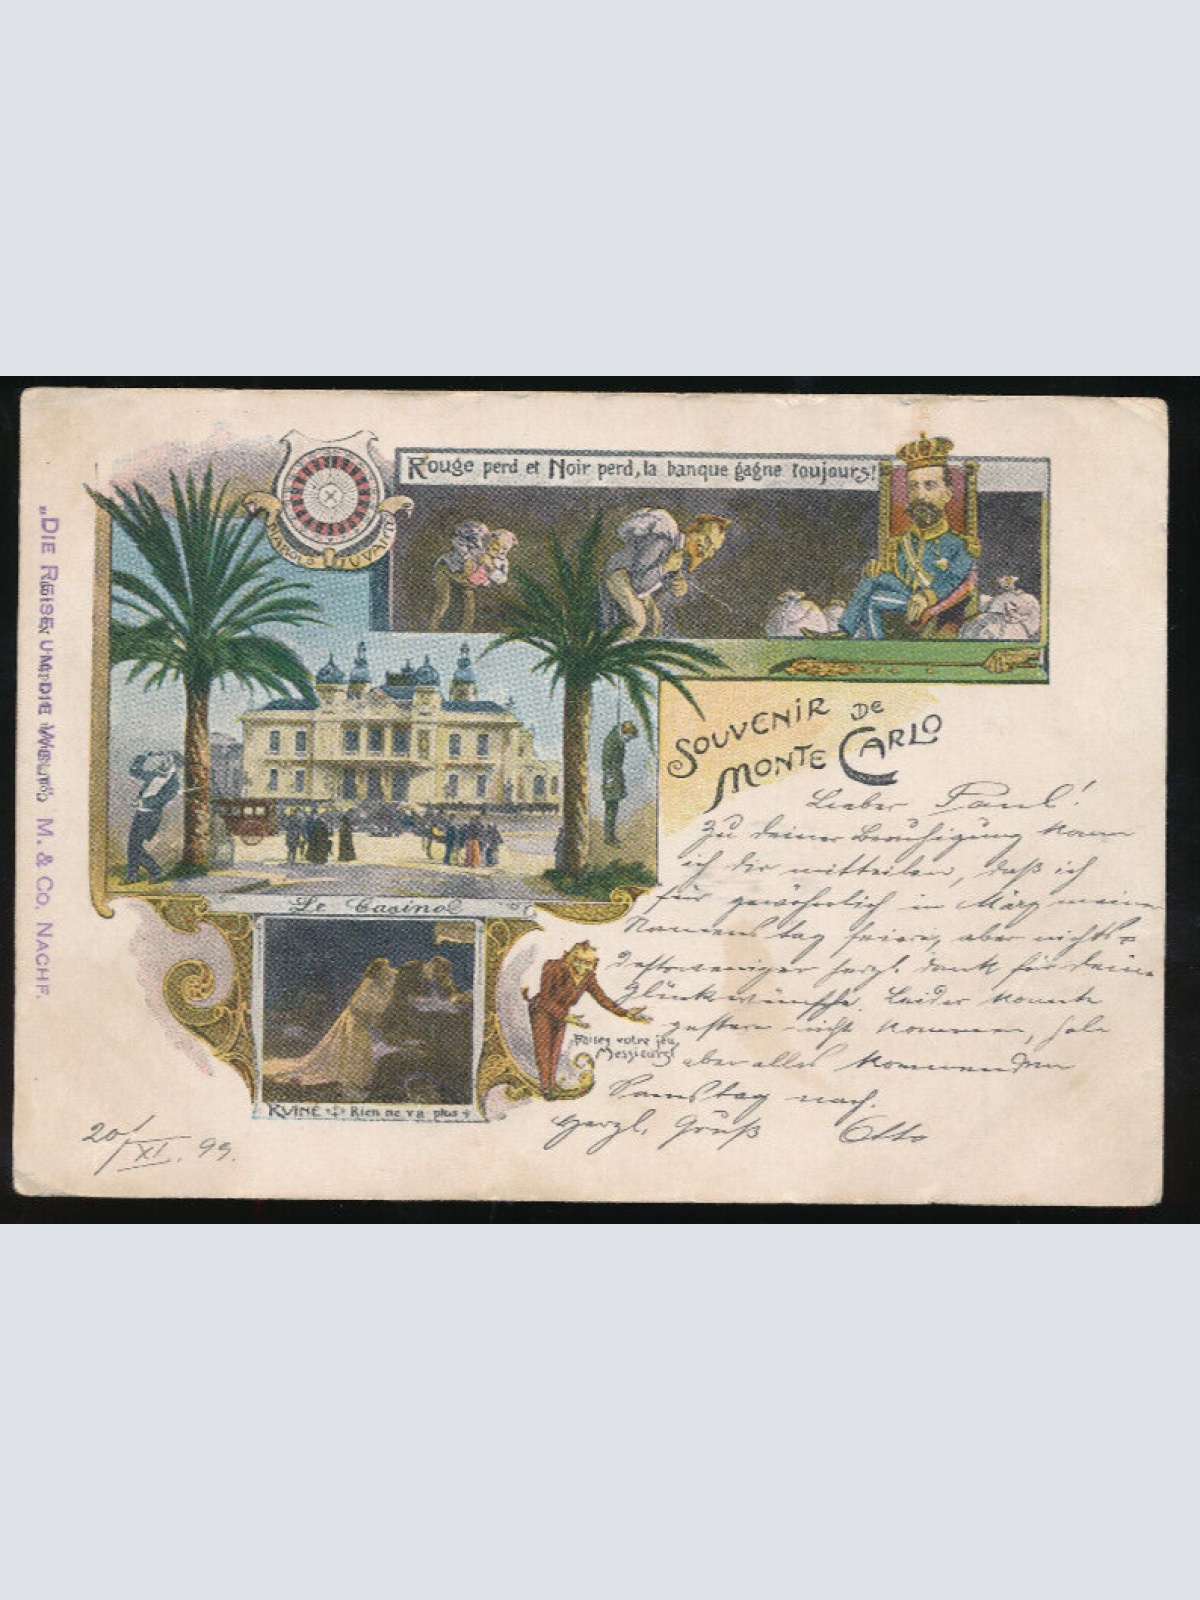 Rouge perd et Noir perd, la banque gagne toujours!
DIABOLO JUVANTE
SOUVENIR DE
MONTE CARLO
Le Casino
RUINE Rien ne va plus
Faites votre jeu,
Messieurs!
„DIE REISE UM DIE WELT“ M. & CO. NACHF.
Lieber Paul!
Zu deiner Beruhigung kann
ich dir mitteilen, daß ich
für gewöhnlich im März meinen
Namenstag feiere, aber nichts-
destoweniger herzl. Dank für deine
Glückwünsche. Leider konnte
gestern nicht kommen, hole
aber alles kommenden
Samstag nach.
Herzl. Gruß Otto
20/XI. 99.